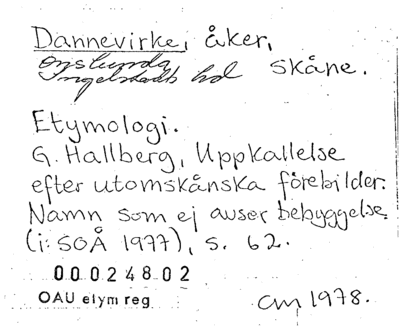 Dannevirke, åker,
Onslunda
Ingelstads hd skåne.
Etymologi.
G. Hallberg, Uppkallelse
efter utomskånska förebilder.
Namn som ej avser bebyggelse.
(i: SOÅ 1977), s. 62.
00024802
OAU etym reg
CM 1978.